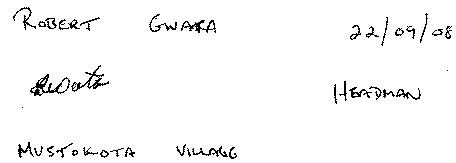 ROBERT GWAFA 22/09/08
HEADMAN
MUSTOKOTA VILLAGE